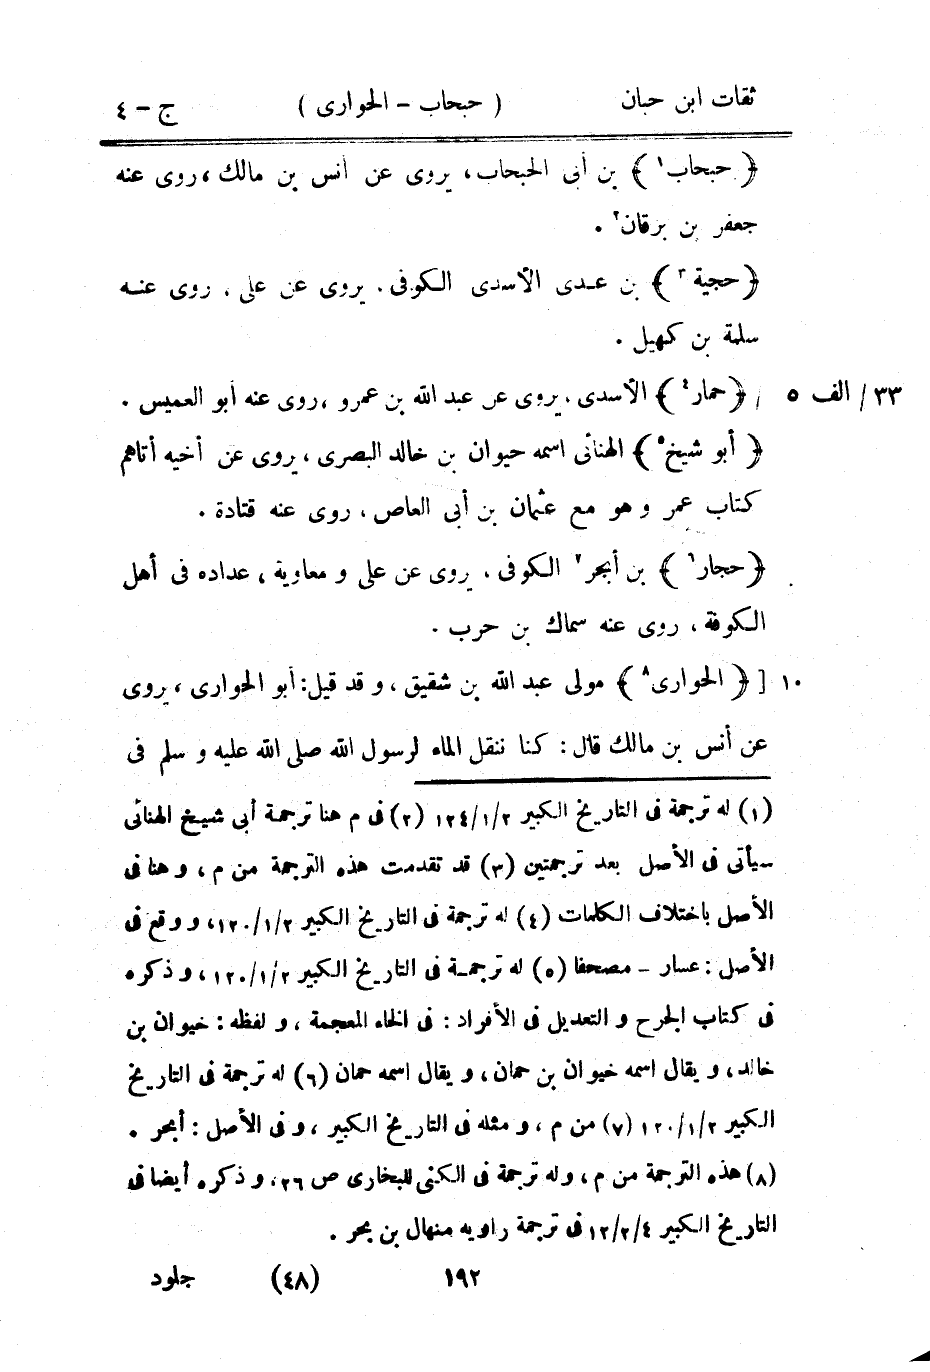 ثقات ابن حبان ( حبحاب - الحوارى ) ج - ٤
﴿ حبحاب١ ﴾ بن أبى الحبحاب، يروى عن أنس بن مالك، روى عنه
جعفر بن برقان٢ .
﴿ حجية٣ ﴾ بن عدى الأسدى الكوفى، يروى عن على، روى عنه
سلمة بن كهيل .
٣٣ / الف ٥ / ﴿ حمار٤ ﴾ الأسدى، يروى عن عبد الله بن عمرو، روى عنه أبو العميس .
﴿ أبو شيخ٥ ﴾ الهنائى اسمه حيوان بن خالد البصرى، يروى عن أخيه أتاهم
كتاب عمر و هو مع عثمان بن أبى العاص، روى عنه قتادة .
﴿ حجار٦ ﴾ بن أبجر٧ الكوفى، يروى عن على و معاوية، عداده فى أهل
الكوفة، روى عنه سماك بن حرب .
١٠ [ ﴿ الحوارى٨ ﴾ مولى عبد الله بن شقيق، و قد قيل: أبو الحوارى، يروى
عن أنس بن مالك قال: كنا ننقل الماء لرسول الله صلى الله عليه و سلم فى
(١) له ترجمة فى التاريخ الكبير ١٢٤/١/٢ (٢) فى م هنا ترجمة أبى شيخ الهنائى
سيأتى فى الأصل بعد ترجمتين (٣) قد تقدمت هذه الترجمة من م، و هنا فى
الأصل باختلاف الكلمات (٤) له ترجمة فى التاريخ الكبير ١٢٠/١/٢، و وقع فى
الأصل: عسار - مصحفا (٥) له ترجمة فى التاريخ الكبير ١٢٠/١/٢، و ذكره
فى كتاب الجرح و التعديل فى الأفراد: فى الخاء المعجمة، و لفظه: خيوان بن
خالد، و يقال اسمه خيوان بن حمان، و يقال اسمه حمان (٦) له ترجمة فى التاريخ
الكبير ١٢٠/١/٢ (٧) من م، و مثله فى التاريخ الكبير، و فى الأصل: أبحر .
(٨) هذه الترجمة من م، وله ترجمة فى الكنى للبخارى ص ٢٦، و ذكره أيضا فى
التاريخ الكبير ١٢/٢/٤ فى ترجمة راويه منهال بن بحر .
١٩٢ (٤٨) جلود